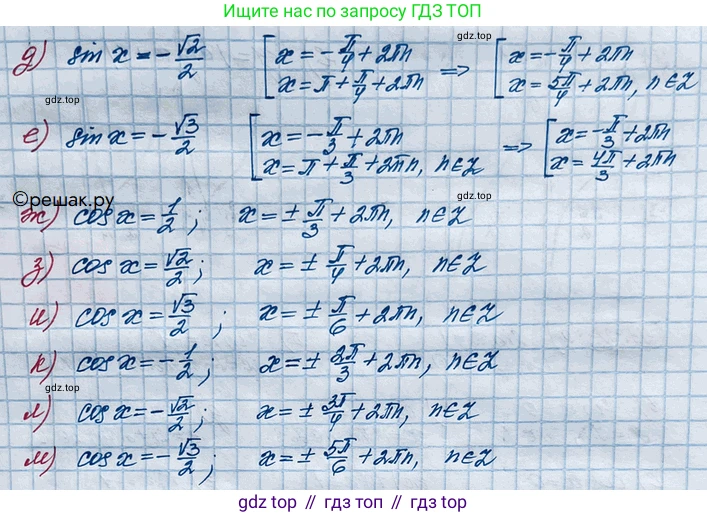 Ищите нас по запросу ГДЗ ТОП
д) sin x = -√2/2 [x = -π/4 + 2πn => [x = -π/4 + 2πn
x = π + π/4 + 2πn x = 5π/4 + 2πn, n∈Z
gdz.top
gdz.top
gdz.top
е) sin x = -√3/2 [x = -π/3 + 2πn => [x = -π/3 + 2πn
x = π + π/3 + 2πn, n∈Z x = 4π/3 + 2πn
gdz.top
©решак.ру
ж) cos x = 1/2; x = ± π/3 + 2πn, n∈Z
з) cos x = √2/2; x = ± π/4 + 2πn, n∈Z
и) cos x = √3/2; x = ± π/6 + 2πn, n∈Z
к) cos x = -1/2; x = ± 2π/3 + 2πn, n∈Z
gdz.top
gdz.top
л) cos x = -√2/2; x = ± 3π/4 + 2πn, n∈Z
м) cos x = -√3/2; x = ± 5π/6 + 2πn, n∈Z
gdz top // гдз топ // gdz top